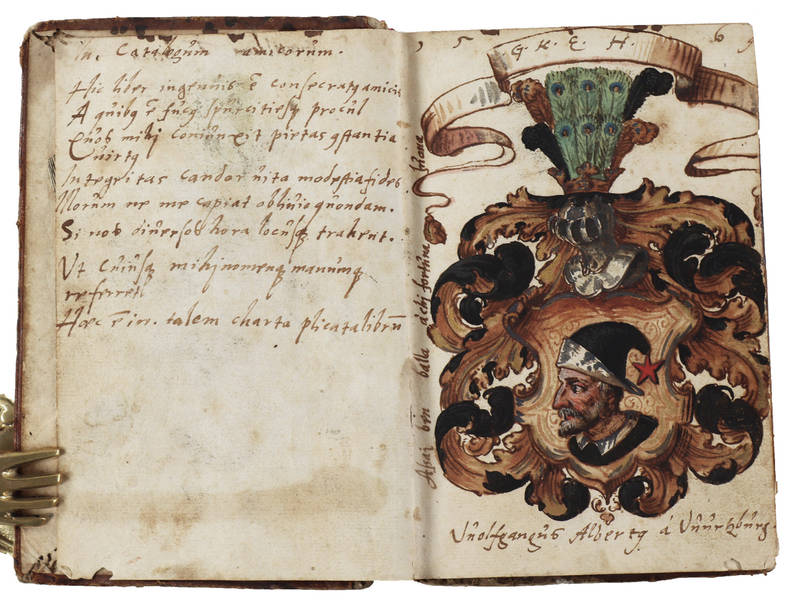 In. Catalogum amicorum.
Hic liber ingenuis ē consecratq amicis
A quibq ē fucq spurcitiesq procul
Quos mihi coniunxit pietas gstantia
Virtq
Integritas candor uita modestia fides
Morum ne me capiat obliuio quondam.
Si nos diuersos hora locusq trahent.
Ut cuiusq mihi nomenq manumq
referret
Hæc ē in. talem charta plicata librū
1 5 G. K. E. H. 6 9
Assai ben balla à chi fortuna suona
Vuolfgangus Albertq á Vuurtzburg.